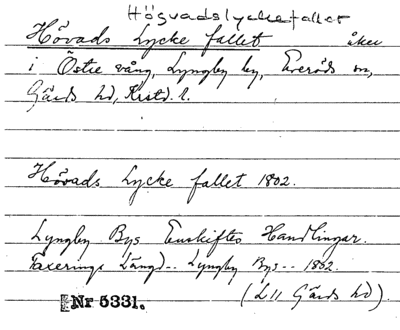 Högvadslyckefallet
Hövads Lycke fallet åker
i Östre vång, Lyngby by, Everöds sn,
Gärds hd, Krstd. l.
Hövads Lycke fallet 1802.
Lyngby Bys Enskiftes Handlingar.
Taxerings Längd.. Lyngby Bys.. 1802.
(L 11 Gärds hd).
Nr 5331.